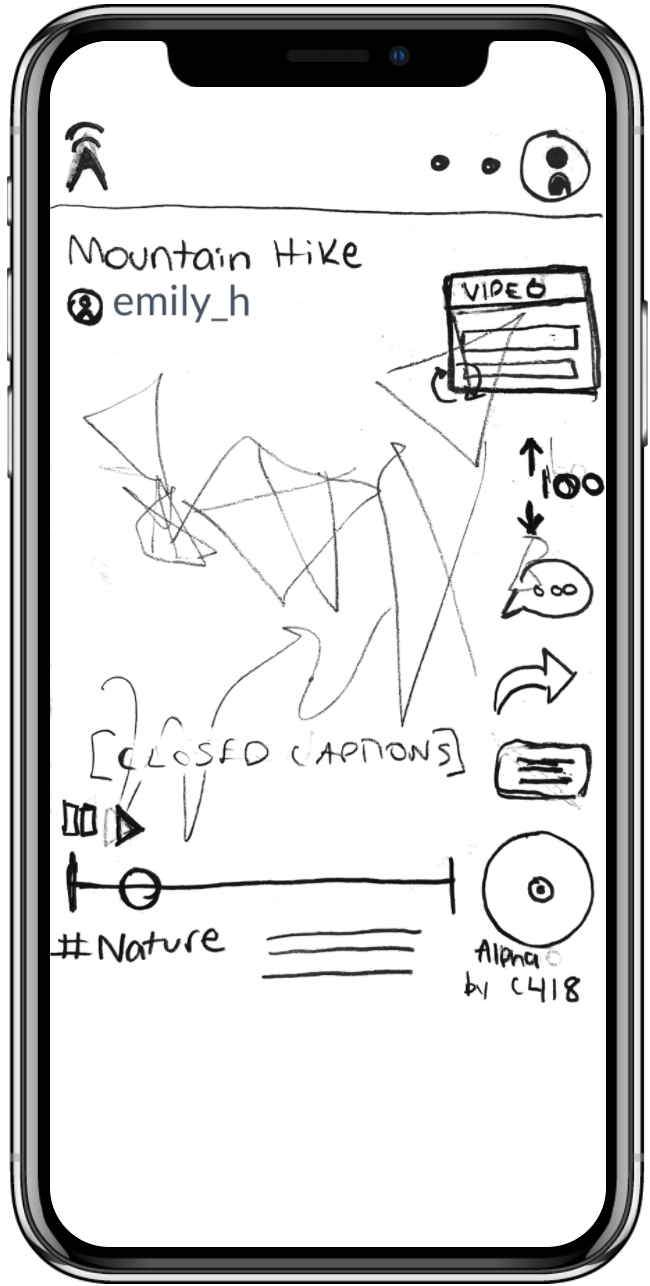 Mountain Hike
emily_h
VIDEO
100
[CLOSED CAPTIONS]
#Nature
Alpha
by C418